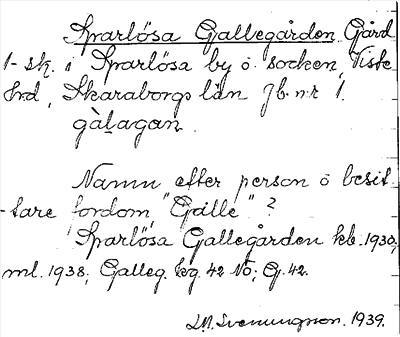 Sparlösa Gallegården Gård
1-sk. i Sparlösa by o. socken, Viste
hrd, Skaraborgs län Jb. nr 1.
gàlagaṇ.
Namn efter person o besit-
tare fordom, "Galle" ?
Sparlösa Gallegården kb. 1930,
ml. 1938; Galleg. kg. 42 NO; G. 42.
1939.